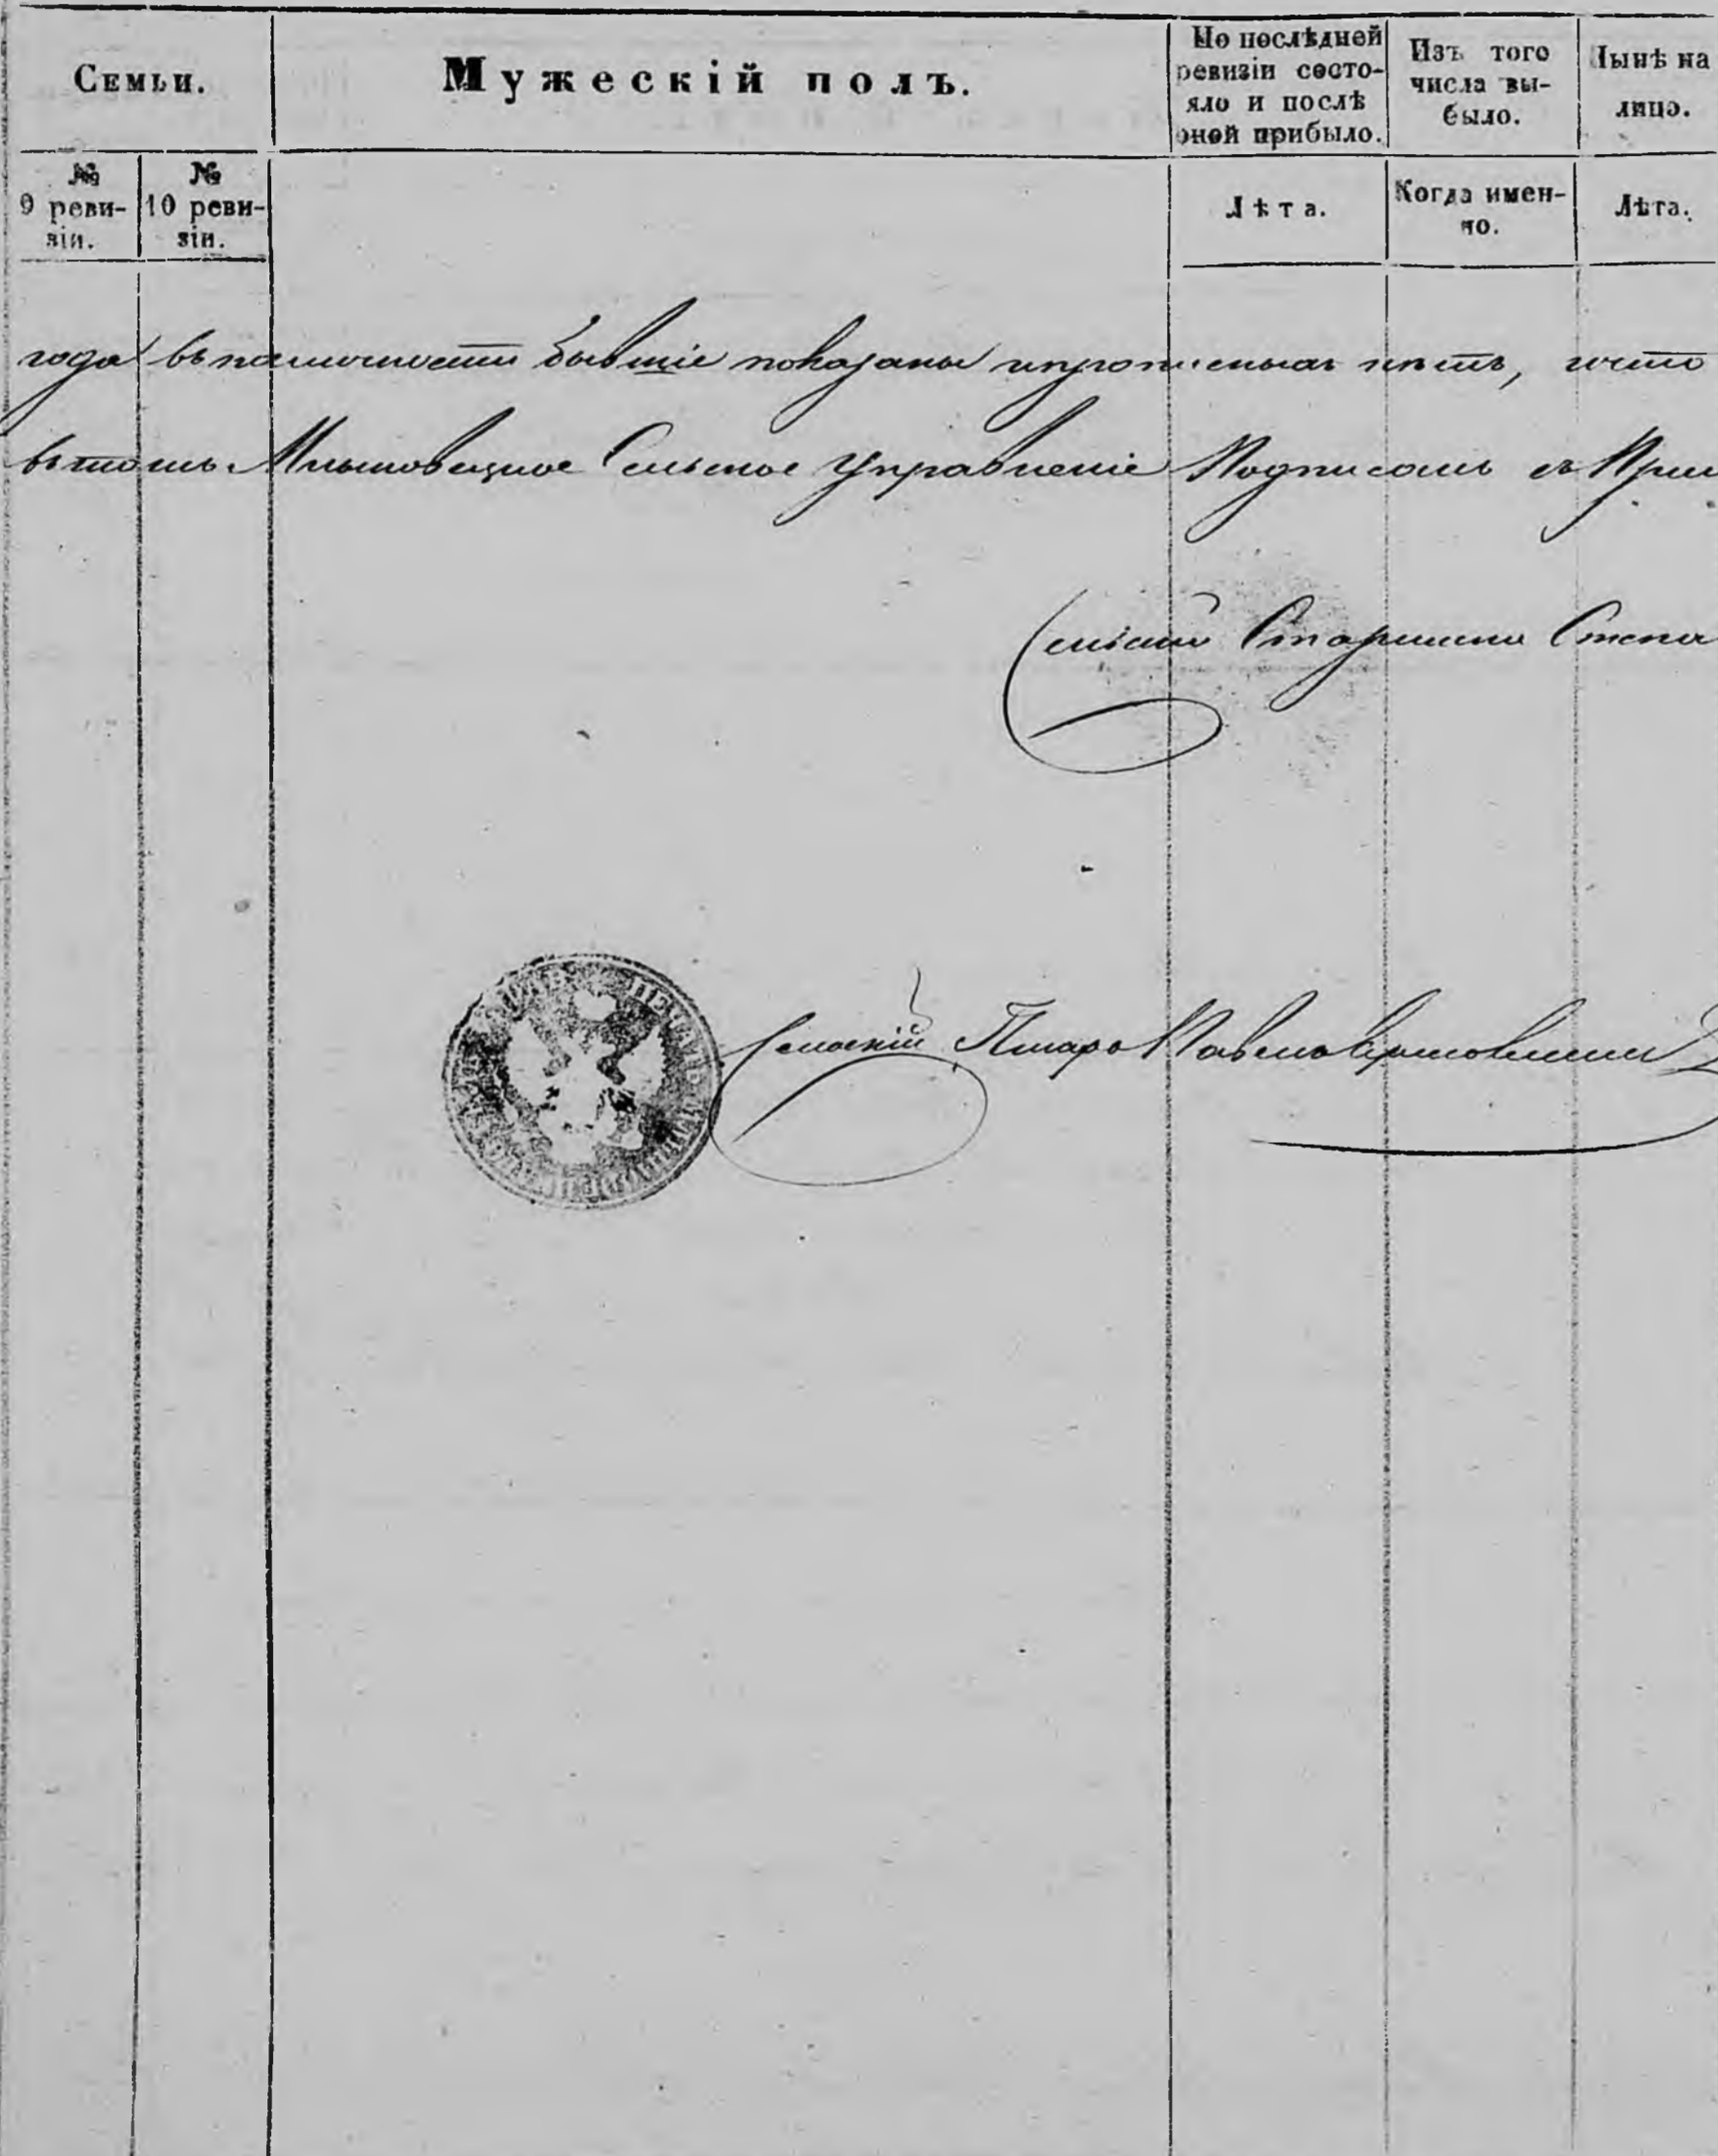 Семьи.
Мужескій полъ.
По послѣдней
ревизіи состо-
яло и послѣ
оной прибыло.
Изъ того
числа вы-
было.
Нынѣ на
лицо.
№
9 реви-
зіи.
№
10 реви-
зіи.
Лѣта.
Когда имен-
но.
Лѣта.
года въ наличности бывшіе показаны и прописныхъ нѣтъ, что
въ томъ Сельское Управленіе Подписомъ съ При
Сельскій Старшина Степа
Сельскій Писарь Павелъ
ПЕЧАТЬ